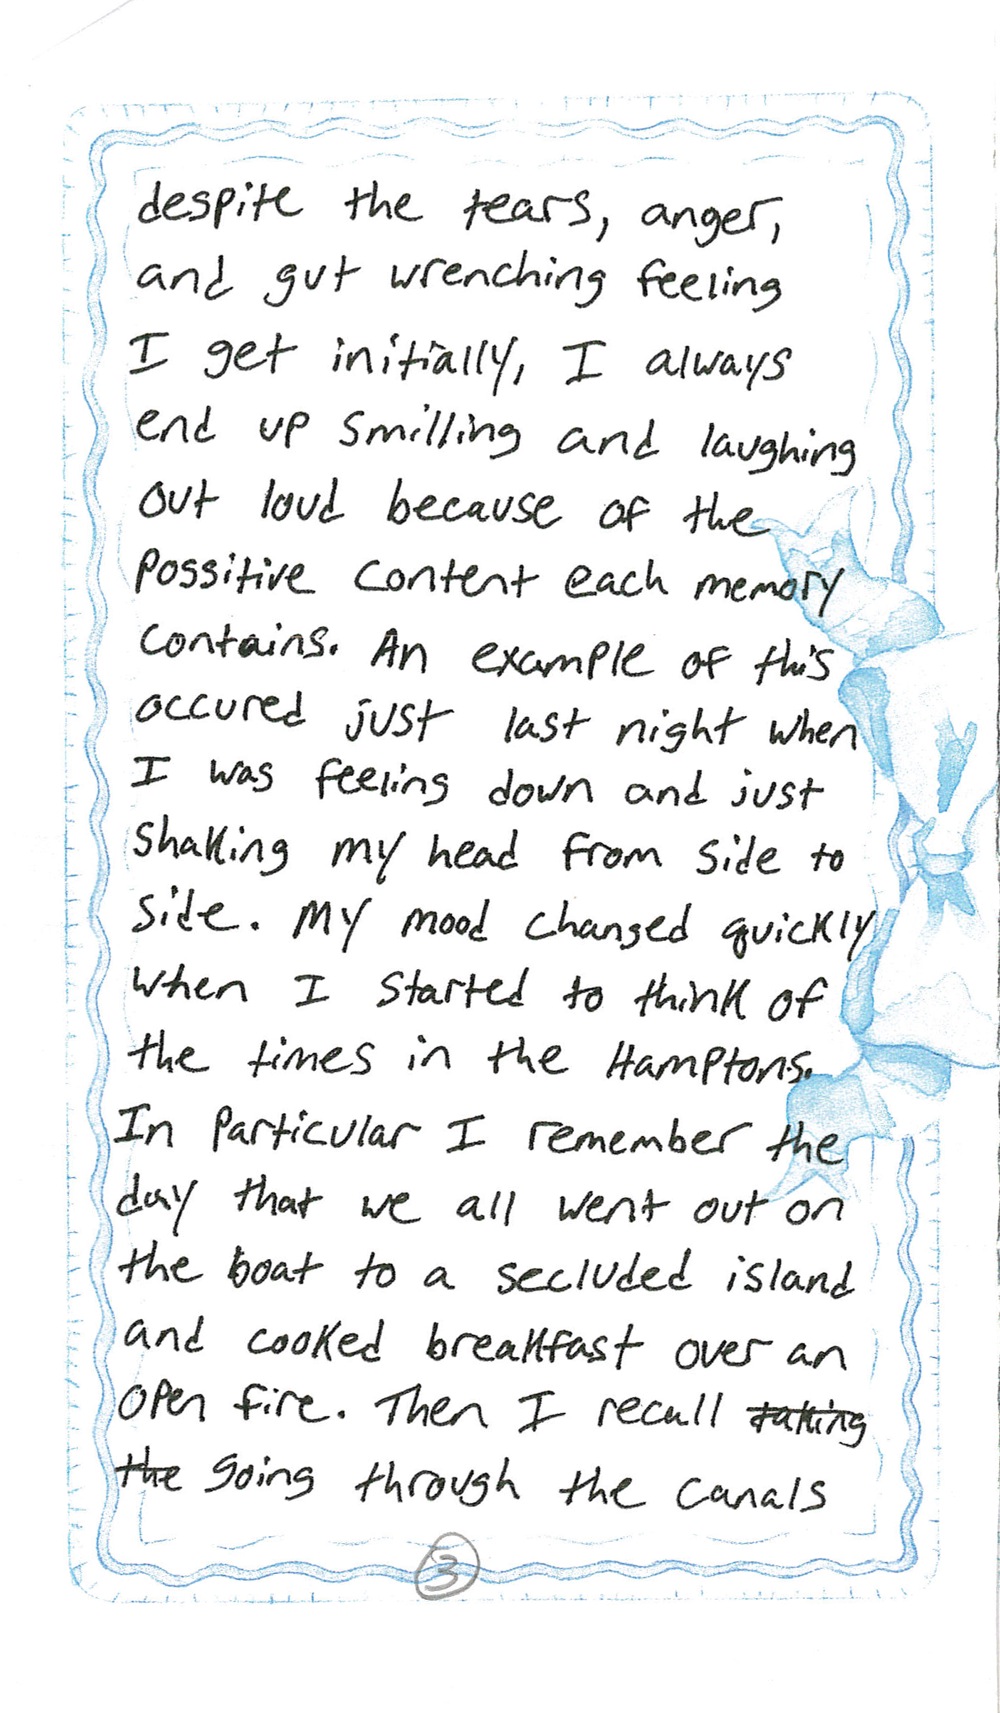 despite the tears, anger,
and gut wrenching feeling
I get initially, I always
end up smilling and laughing
out loud because of the
possitive content each memory
contains. An example of this
occured just last night when
I was feeling down and just
shaking my head from side to
side. My mood changed quickly
when I started to think of
the times in the Hamptons.
In particular I remember the
day that we all went out on
the boat to a secluded island
and cooked breakfast over an
open fire. Then I recall taking
the going through the canals
3